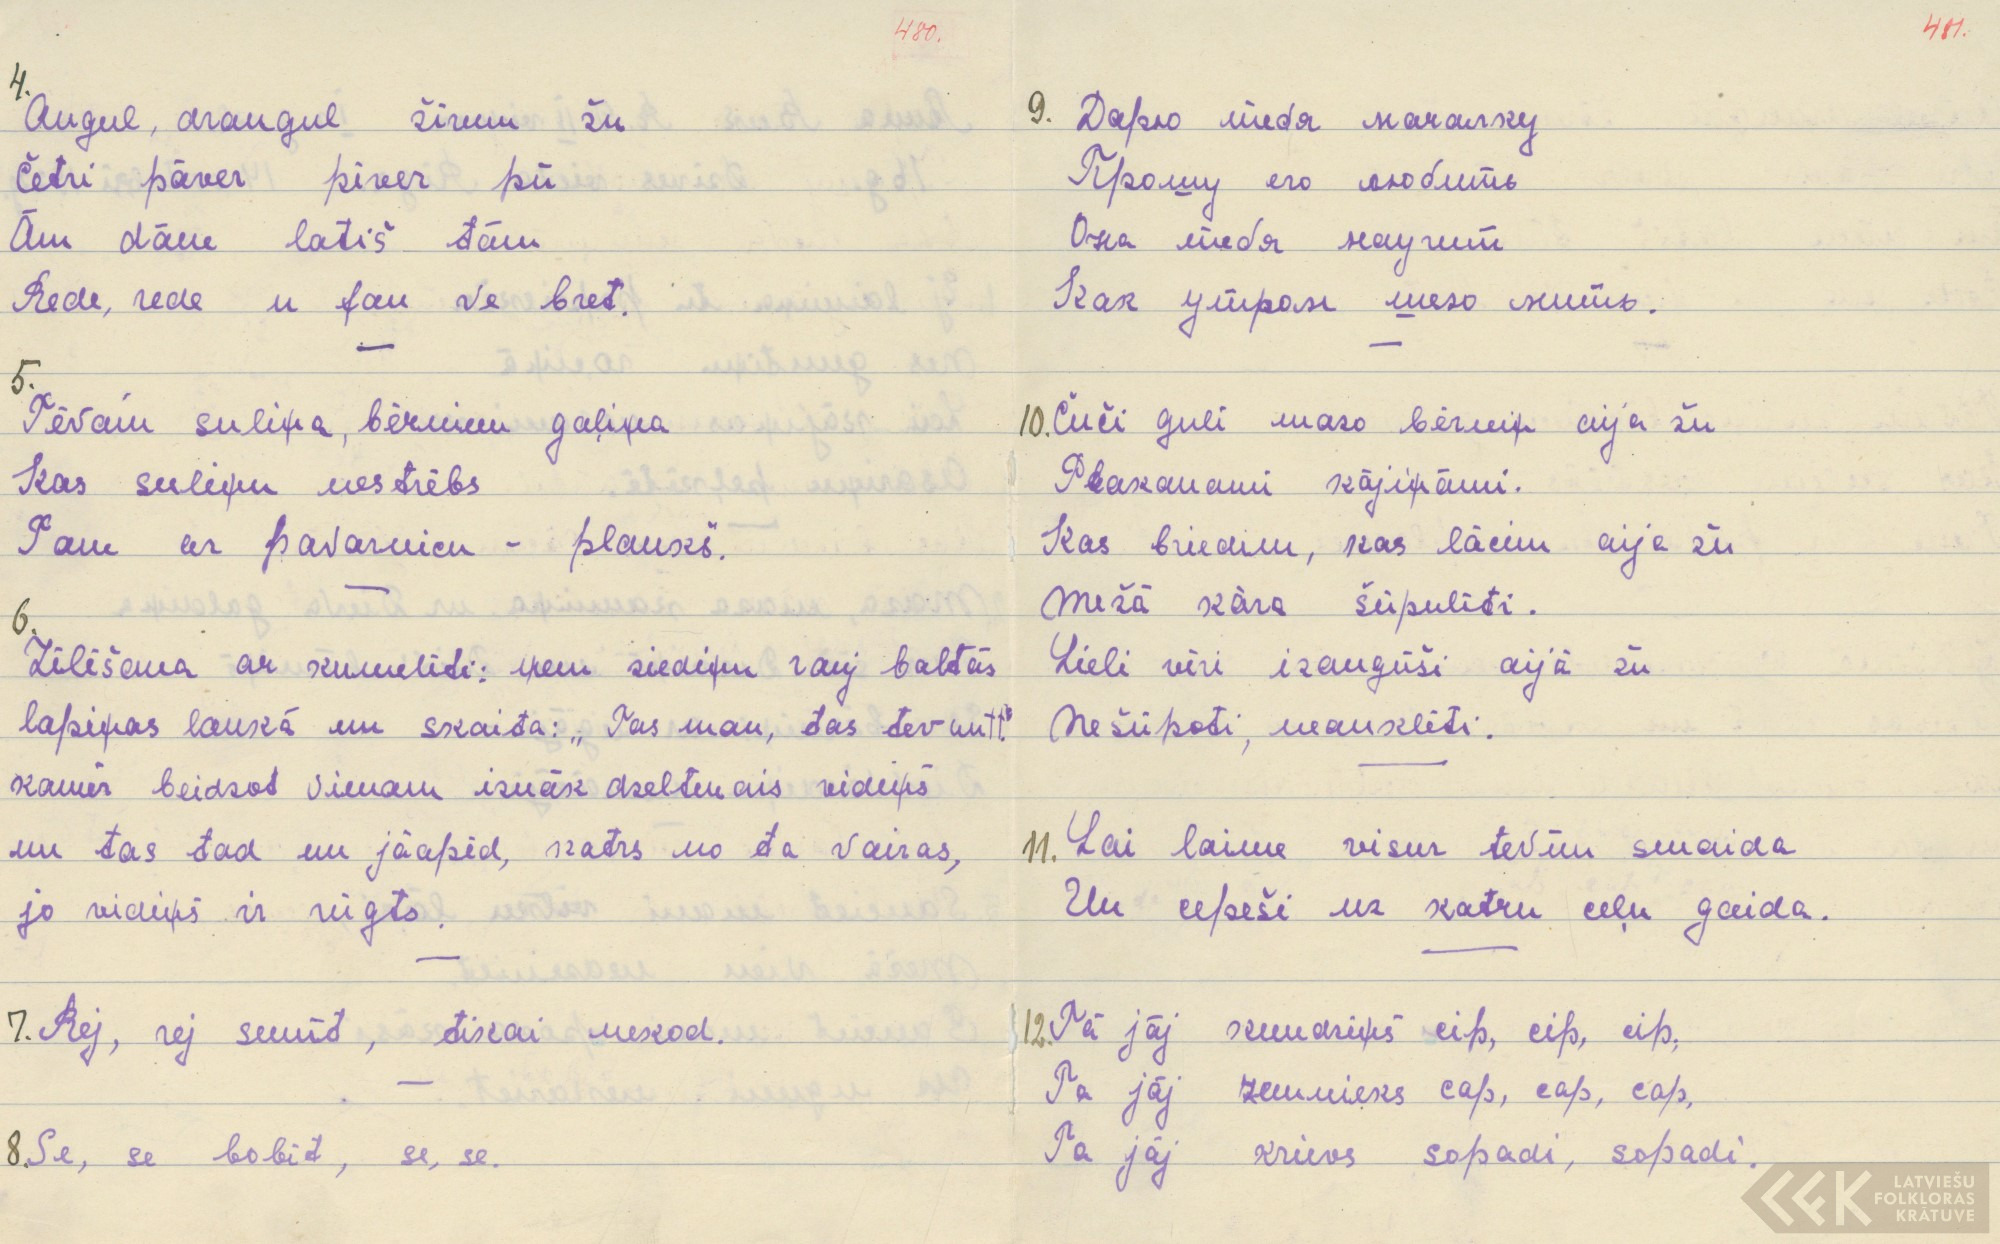 480.
4.
Augul, draugul žirum žu
Četri pāver piver pū
Ām dāme latiš tām
Rede, rede u fau ve bret.
5.
Tēvam suliņa, bērniem gaļiņa
Kas suliņu nestrēbs
Tam ar pavarnicu - plaukš.
6.
Zīlēšana ar kumelīti: ņem ziediņu rauj baltās
lapiņas laukā un skaita: „Tas man, tas tev utt."
kamēr beidzot vienam iznāk dzeltenais vidiņš
un tas tad un jāapēd, katrs no tā vairas,
jo vidiņš ir rūgts.
7. Rej, rej sunīt, tikai nekod.
8. Se, se bobit, se, se.
481.
9. Дарю тебя мачалку
Прошу его любить
Она тебя научит
Как утром шезо мить.
10. Čuči guli mazo bērniņ aija žu
Plakanami kājiņāmi.
Kas briedim, kas lācim aija žu
Mežā kāra šūpulīti.
Lieli vīri izauguši aijā žu
Nešūpoti, neauklēti.
11. Lai laime visur tevīm smaida
Un cepeši uz katru ceļu gaida.
12. Tā jāj kundziņš cip, cip, cip,
Ta jāj zemnieks cap, cap, cap,
Ta jāj krievs sopadi, sopadi.
LATVIEŠU
FOLKLORAS
KRĀTUVE